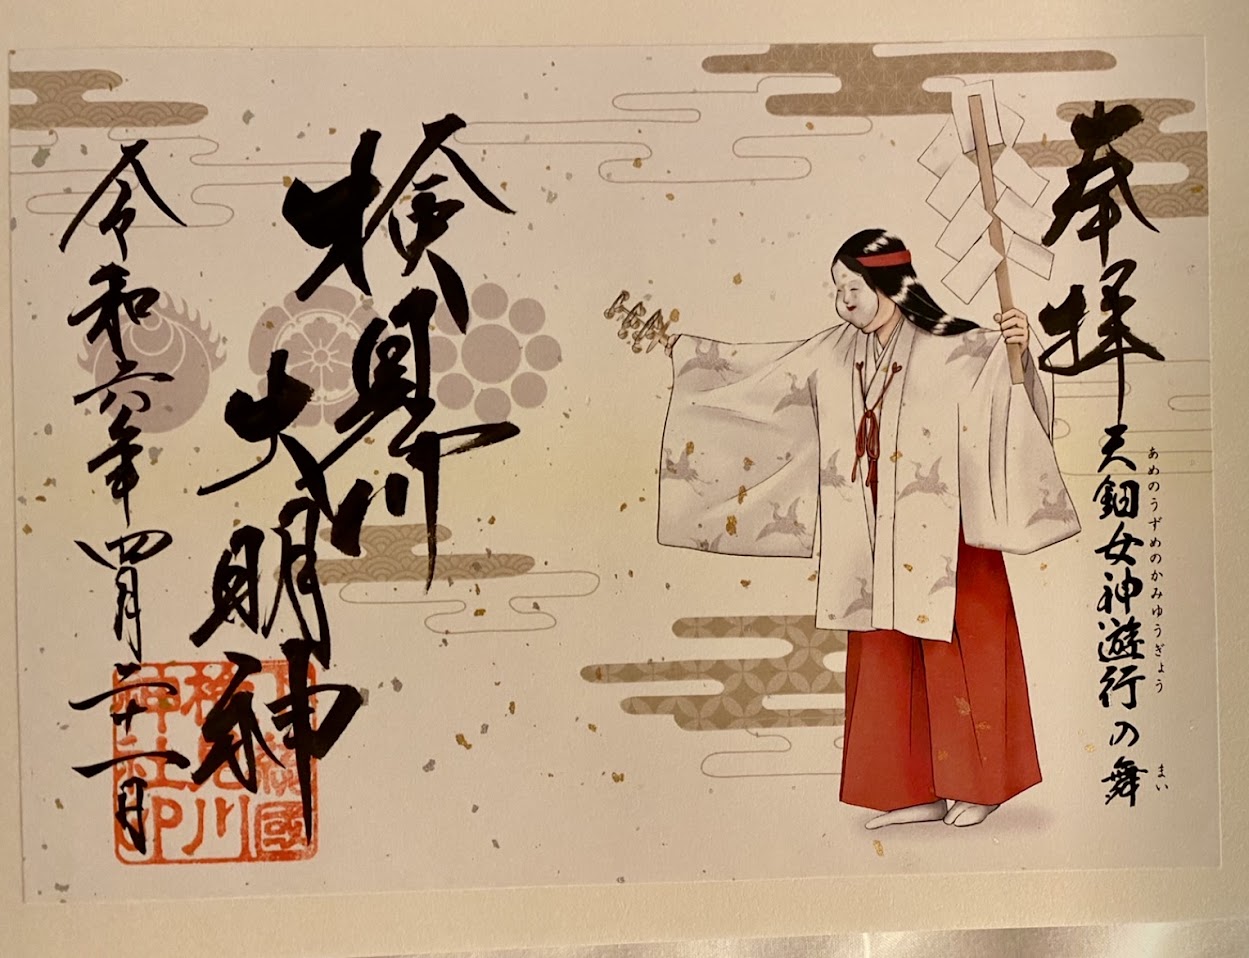 奉拝
天鈿女神遊行の舞
あめのうずめのかみゆうぎょう
まい
検見川
大明神
令和六年四月二十一日
下総國
検見川
神社印